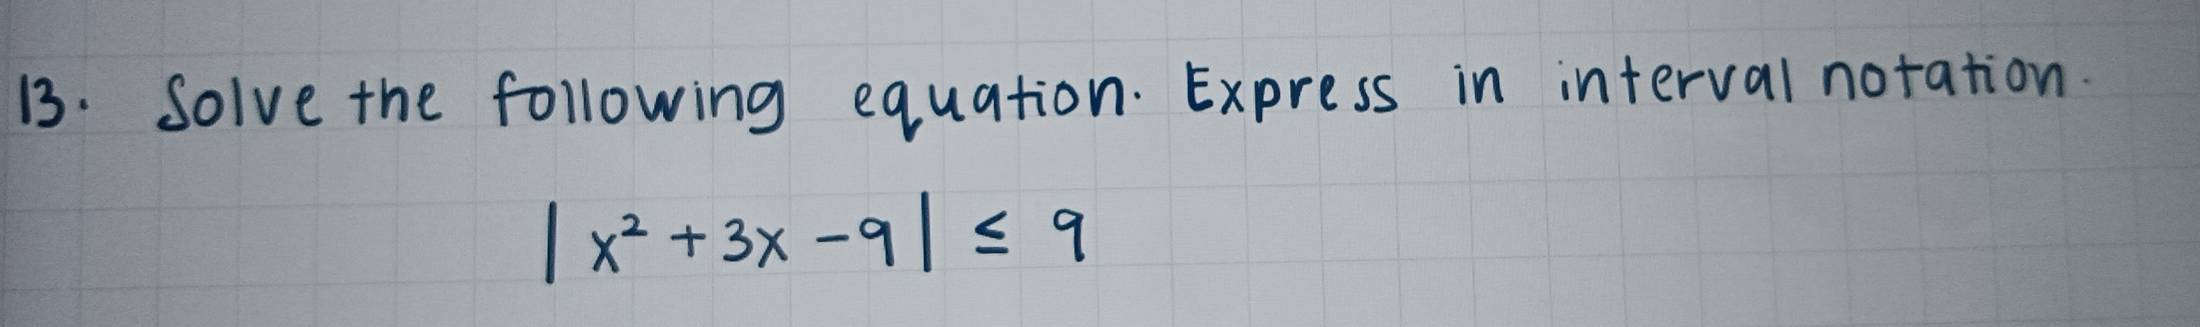 13. Solve the following equation. Express in interval notation.
|x² + 3x - 9| ≤ 9